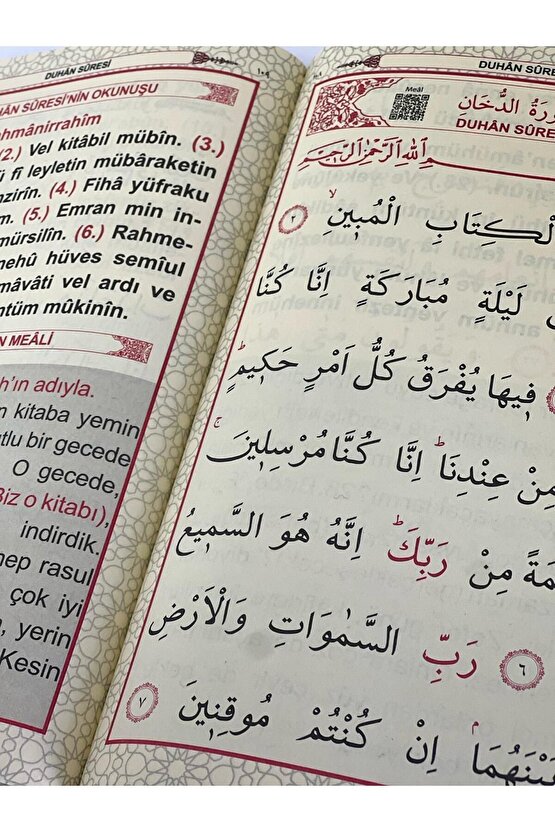 DUHÂN SÛRESİ
١٠٩
SÛRESİ'NİN OKUNUŞU
(2.) Vel kitâbil mübîn. (3.)
fî leyletin mübâraketin
(4.) Fihâ yüfraku
(5.) Emran min in-
mürsilîn. (6.) Rahme-
hüves semîul
vel ardı ve
mûkinîn.
MEÂLİ
adıyla.
kitaba yemin
bir gecede
O gecede,
Biz o kitabı),
indirdik.
rasul
çok iyi
yerin
Kesin
DUHÂN
Meâl
سُورَةُ الدُّخَانِ
DUHÂN
بِسْمِ اللهِ الرَّحْمٰنِ الرَّحِيمِ
الْكِتَابِ الْمُبِينِ ٢
لَيْلَةٍ مُبَارَكَةٍ اِنَّا كُنَّا
فِيهَا يُفْرَقُ كُلُّ اَمْرٍ حَكِيمٍ
مِنْ عِنْدِنَا اِنَّا كُنَّا مُرْسِلِينَ
مِنْ رَبِّكَ اِنَّهُ هُوَ السَّمِيعُ
٦ رَبِّ السَّمٰوَاتِ وَالْاَرْضِ
اِنْ كُنْتُمْ مُوقِنِينَ ٧